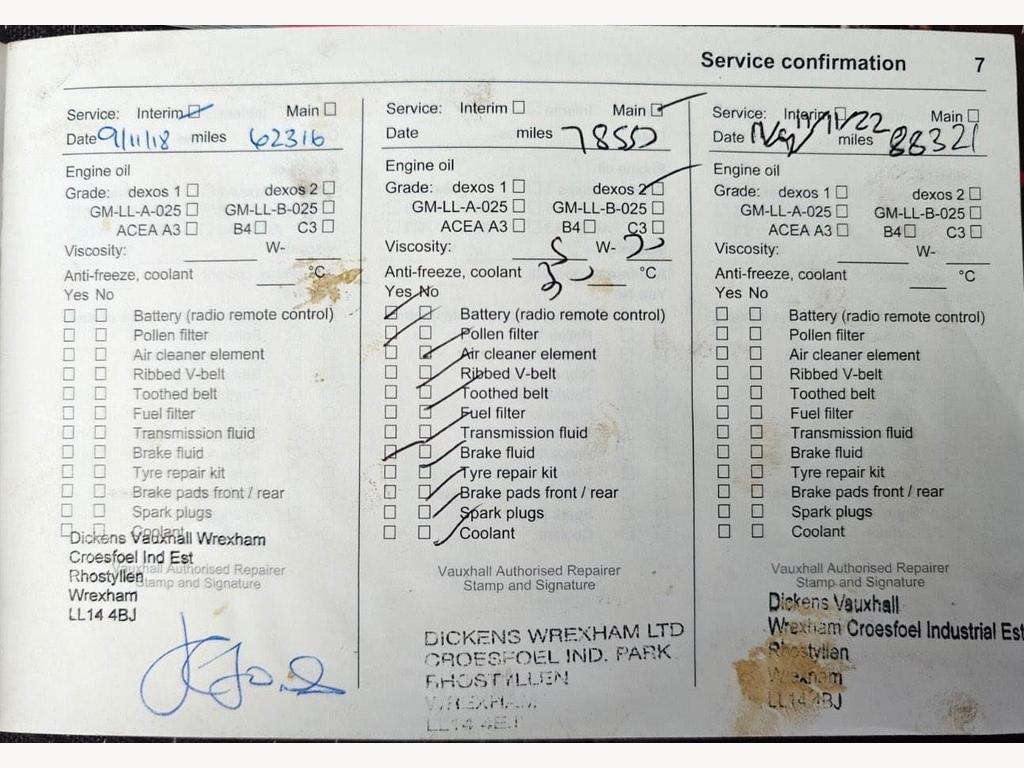 Service confirmation 7
Service: Interim Main
Date 9/11/18 miles 62316
Engine oil
Grade: dexos 1 dexos 2
GM-LL-A-025 GM-LL-B-025
ACEA A3 B4 C3
Viscosity: W-
Anti-freeze, coolant °C
Yes No
Battery (radio remote control)
Pollen filter
Air cleaner element
Ribbed V-belt
Toothed belt
Fuel filter
Transmission fluid
Brake fluid
Tyre repair kit
Brake pads front / rear
Spark plugs
Coolant
Vauxhall Authorised Repairer
Stamp and Signature
Dickens Vauxhall Wrexham
Croesfoel Ind Est
Rhostyllen
Wrexham
LL14 4BJ
Service: Interim Main
Date miles
Engine oil
Grade: dexos 1 dexos 2
GM-LL-A-025 GM-LL-B-025
ACEA A3 B4 C3
Viscosity: 5 W-
Anti-freeze, coolant °C
Yes No
Battery (radio remote control)
Pollen filter
Air cleaner element
Ribbed V-belt
Toothed belt
Fuel filter
Transmission fluid
Brake fluid
Tyre repair kit
Brake pads front / rear
Spark plugs
Coolant
Vauxhall Authorised Repairer
Stamp and Signature
DICKENS WREXHAM LTD
CROESFOEL IND. PARK
RHOSTYLLEN
WREXHAM
Service: Interim Main
Date miles 88321
Engine oil
Grade: dexos 1 dexos 2
GM-LL-A-025 GM-LL-B-025
ACEA A3 B4 C3
Viscosity: W-
Anti-freeze, coolant °C
Yes No
Battery (radio remote control)
Pollen filter
Air cleaner element
Ribbed V-belt
Toothed belt
Fuel filter
Transmission fluid
Brake fluid
Tyre repair kit
Brake pads front / rear
Spark plugs
Coolant
Vauxhall Authorised Repairer
Stamp and Signature
Dickens Vauxhall
Wrexham Croesfoel Industrial Est
Rhostyllen
Wrexham
LL14 4BJ